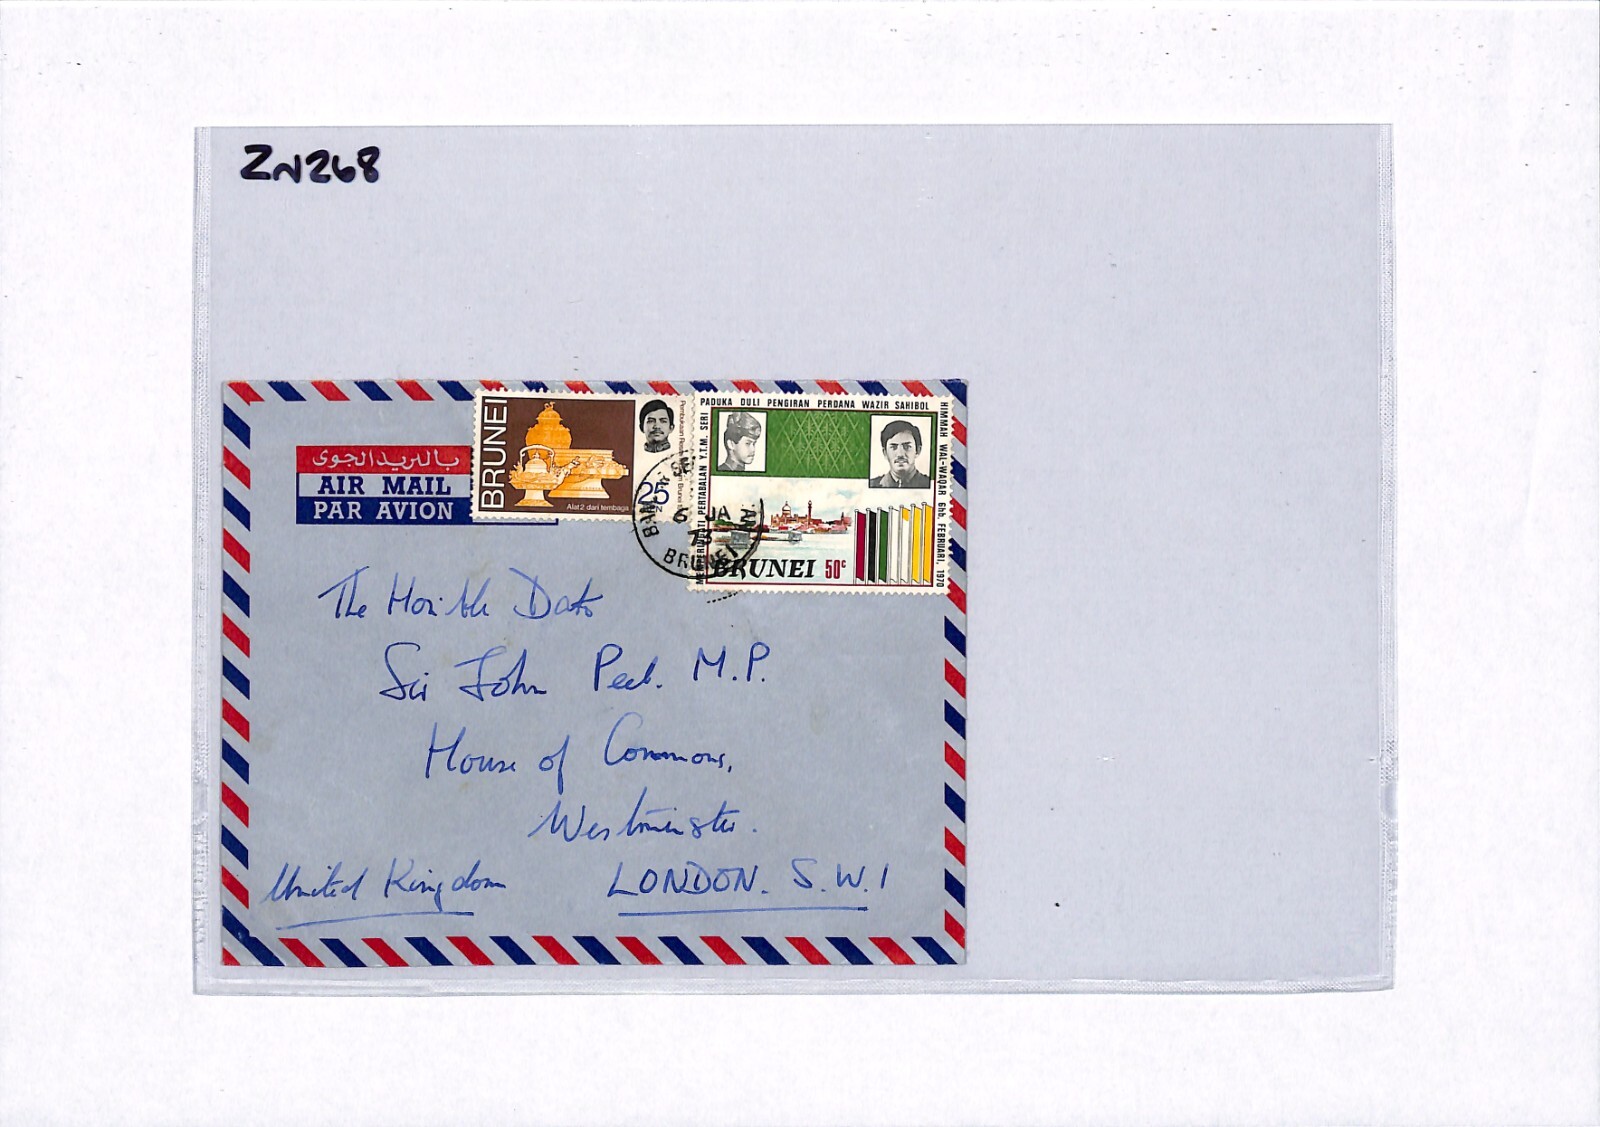 ZN268
بالبريد الجوى
AIR MAIL
PAR AVION
BRUNEI
25
Alat2 dari tembaga
PADUKA DULI PENGIRAN PERDANA WAZIR SAHIBOL
HIMMAH WAL-WAQAR 6hb. FEBRUARI, 1970
PERTABALAN Y.T.M. SERI
BRUNEI 50c
6 JA
73
BRUNEI
The Hon'ble Dato
Sir John Peel. M.P.
House of Commons,
Westminster.
United Kingdom
LONDON. S.W.1